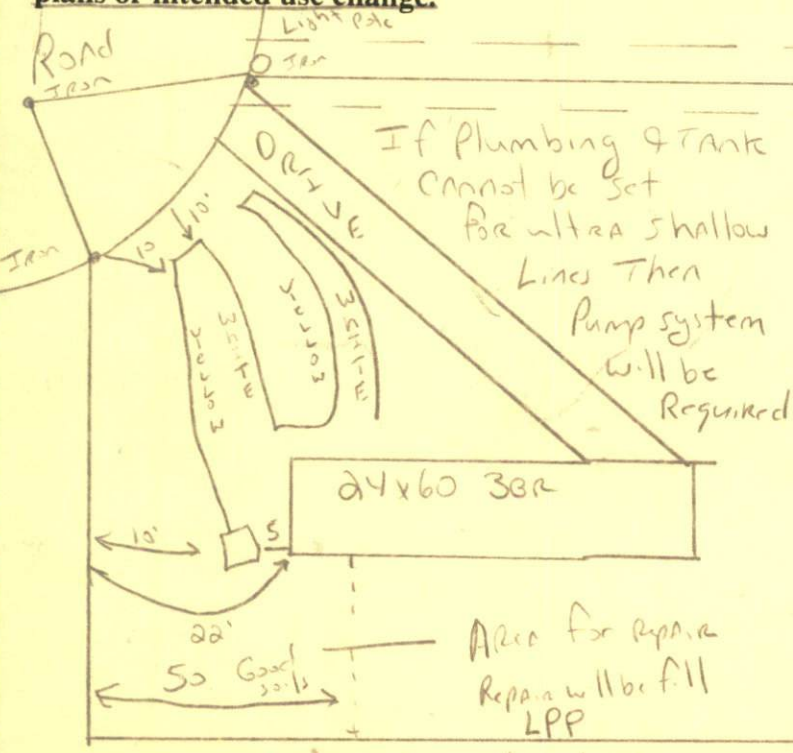 plans or intended use change.
Light Pole
Road
Iron
Iron
Iron
DRIVE
If Plumbing & TANK
Cannot be set
FOR ultRA shallow
Lines Then
Pump system
will be
Required
10
10'
YELLOW
WHITE
YELLOW
WHITE
24x60 3BR
10'
5
22'
50 Good
soils
AREA for RepAiR
Repair will be fill
LPP